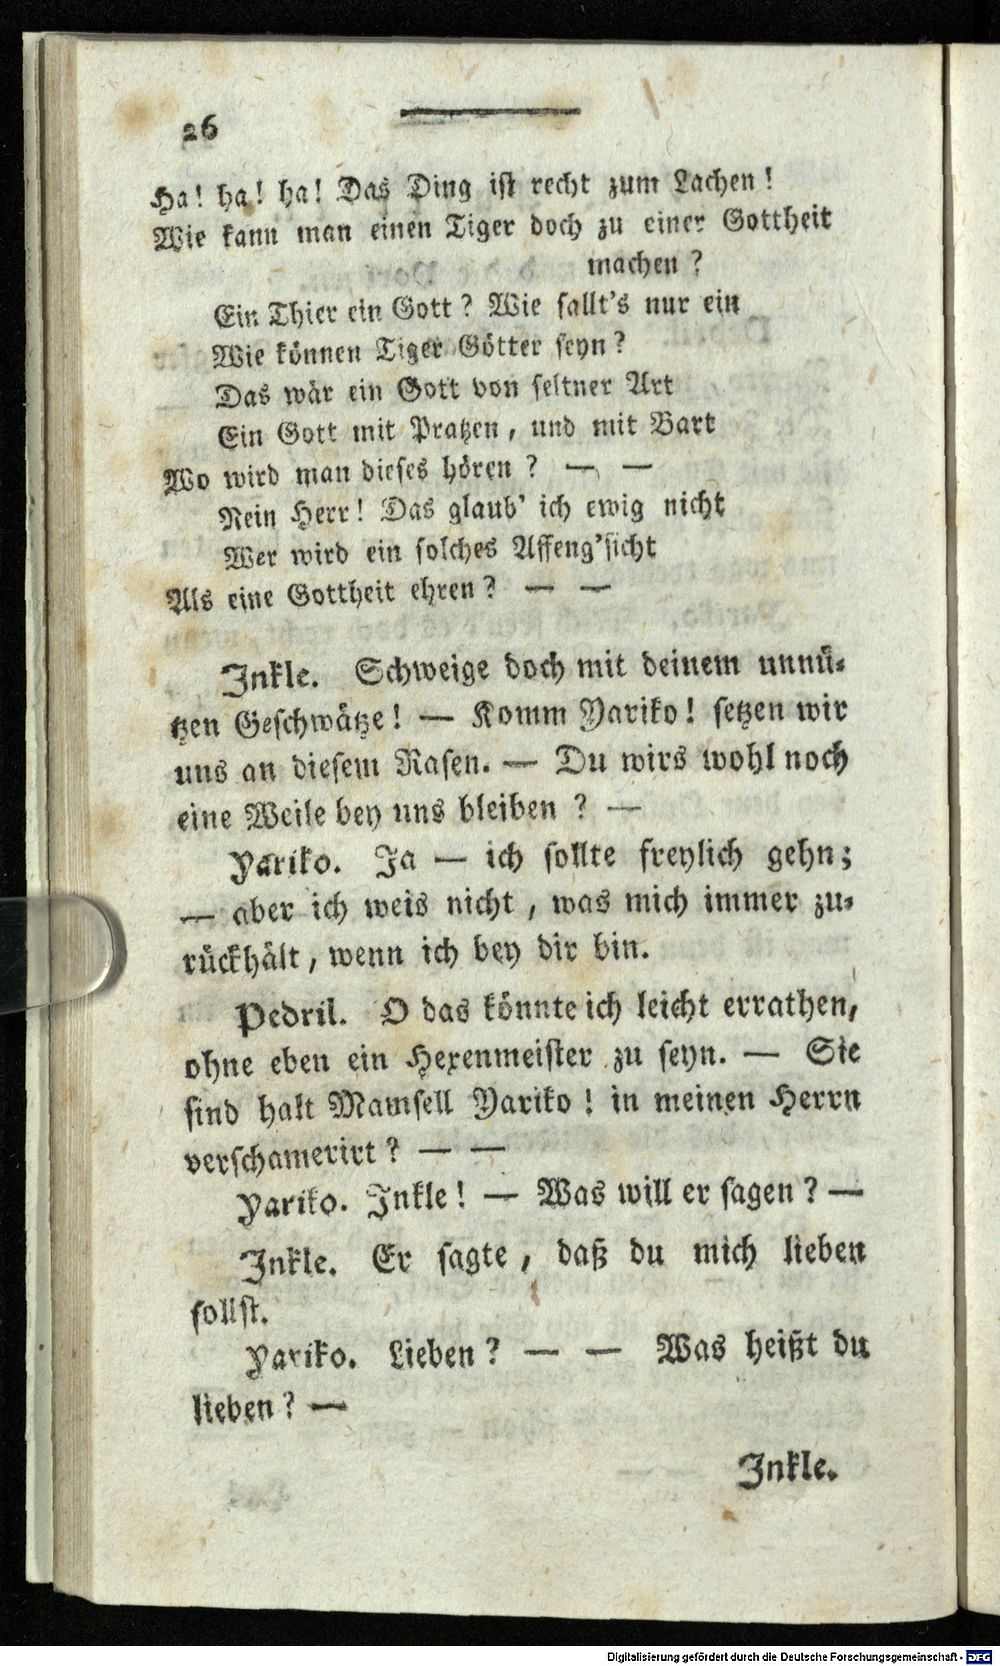 26
Ha! ha! ha! Das Ding ist recht zum Lachen!
Wie kann man einen Tiger doch zu einer Gottheit
machen?
Ein Thier ein Gott? Wie fallt's nur ein
Wie können Tiger Götter seyn?
Das wär ein Gott von seltner Art
Ein Gott mit Pratzen, und mit Bart
Wo wird man dieses hören? — —
Nein Herr! Das glaub' ich ewig nicht
Wer wird ein solches Affeng'sicht
Als eine Gottheit ehren? — —
Inkle. Schweige doch mit deinem unnü-
tzen Geschwätze! — Komm Yariko! setzen wir
uns an diesem Rasen. — Du wirs wohl noch
eine Weile bey uns bleiben? —
Yariko. Ja — ich sollte freylich gehn;
— aber ich weis nicht, was mich immer zu-
rückhält, wenn ich bey dir bin.
Pedril. O das könnte ich leicht errathen,
ohne eben ein Hexenmeister zu seyn. — Sie
sind halt Mamsell Yariko! in meinen Herrn
verschamerirt? — —
Yariko. Inkle! — Was will er sagen? —
Inkle. Er sagte, daß du mich lieben
sollst.
Yariko. Lieben? — — Was heißt du
lieben? —
Inkle.
Digitalisierung gefördert durch die Deutsche Forschungsgemeinschaft - DFG